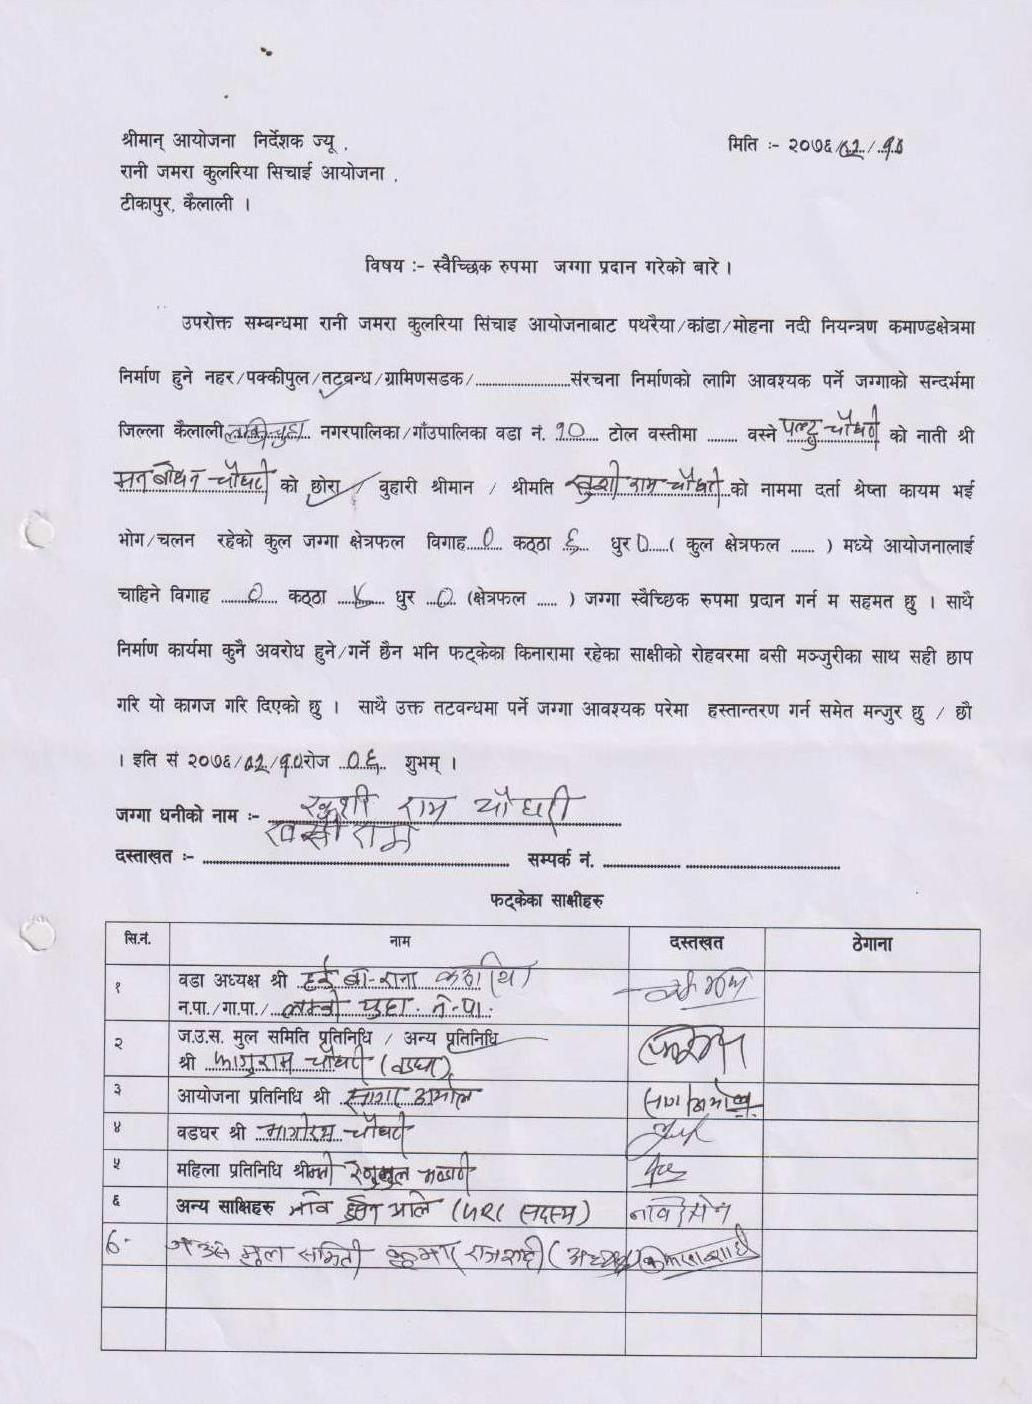 श्रीमान् आयोजना निर्देशक ज्यू ,
मिति :- २०७६/०२/१०
रानी जमरा कुलरिया सिचाई आयोजना ,
टीकापुर, कैलाली ।
विषय :- स्वैच्छिक रुपमा जग्गा प्रदान गरेको बारे ।
उपरोक्त सम्बन्धमा रानी जमरा कुलरिया सिंचाइ आयोजनाबाट पथरैया/कांडा/मोहना नदी नियन्त्रण कमाण्डक्षेत्रमा
निर्माण हुने नहर/पक्कीपुल/तटबन्ध/ग्रामिणसडक/..............................संरचना निर्माणको लागि आवश्यक पर्ने जग्गाको सन्दर्भमा
जिल्ला कैलाली लम्की चुहा नगरपालिका/गाँउपालिका वडा नं. १० टोल वस्तीमा ........ वस्ने पल्टु चौधरी को नाती श्री
मन बोधन चौधरी को छोरा / वुहारी श्रीमान / श्रीमति खुशी राम चौधरी को नाममा दर्ता श्रेष्ता कायम भई
भोग/चलन रहेको कुल जग्गा क्षेत्रफल विगाह ० कठ्ठा ६ धुर ० ( कुल क्षेत्रफल ....... ) मध्ये आयोजनालाई
चाहिने विगाह ० कठ्ठा धुर ० (क्षेत्रफल ...... ) जग्गा स्वैच्छिक रुपमा प्रदान गर्न म सहमत छु । साथै
निर्माण कार्यमा कुनै अवरोध हुने/गर्ने छैन भनि फट्केका किनारामा रहेका साक्षीको रोहवरमा वसी मञ्जुरीका साथ सही छाप
गरि यो कागज गरि दिएको छु । साथै उक्त तटवन्धमा पर्ने जग्गा आवश्यक परेमा हस्तान्तरण गर्न समेत मन्जुर छु / छौ
। इति सं २०७६/०२/१० रोज ०६ शुभम् ।
जग्गा धनीको नाम :- खुशी राम चौधरी
दस्ताखत :- खुसीराम सम्पर्क नं. ....................
फट्केका साक्षीहरु
सि.नं. नाम दस्तखत ठेगाना
१ वडा अध्यक्ष श्री राना
न.पा./गा.पा./ लम्की चुहा न.पा.
२ ज.उ.स. मुल समिति प्रतिनिधि / अन्य प्रतिनिधि
श्री फागुराम चौधरी
३ आयोजना प्रतिनिधि श्री
४ वडघर श्री चौधरी
५ महिला प्रतिनिधि श्रीमती
६ अन्य साक्षिहरु सदस्य)
जउस मूल समिती